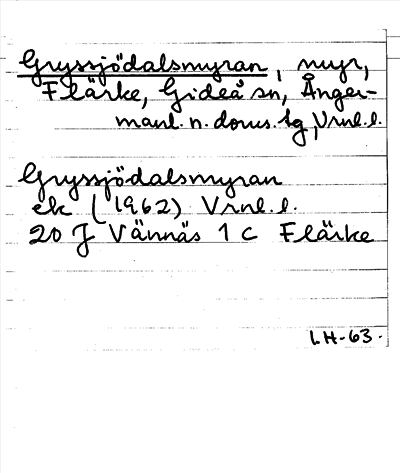 Gryssjödalsmyran, myr,
Flärke, Gideå sn, Ånger-
manl. n. doms. tg, Vrnl. l.
Gryssjödalsmyran
ek (1962) Vrnl. l.
20 J Vännäs 1 c Flärke
I.H-63.